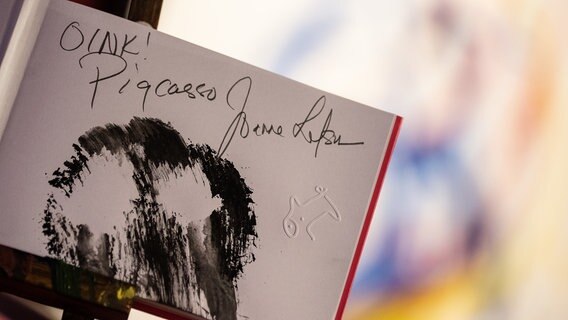 OINK!
Pigcasso Joanne Lefson